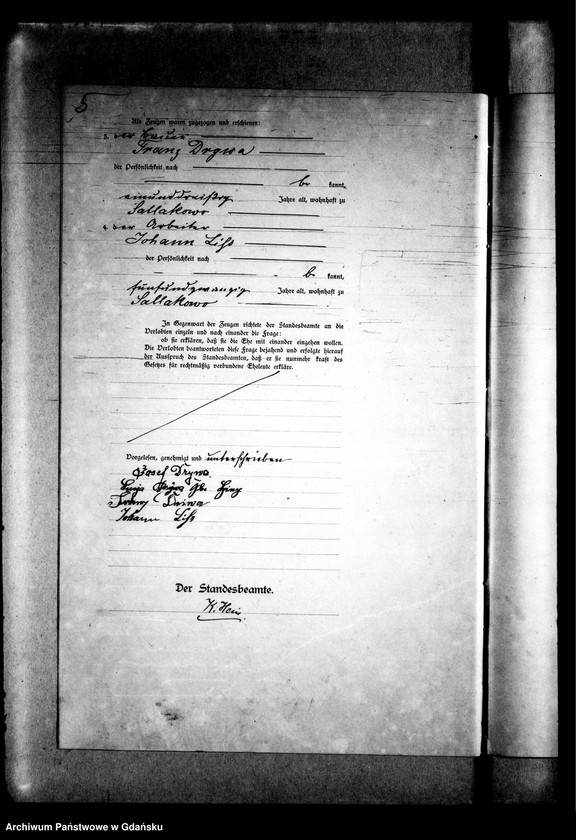 5
Als Zeugen waren zugezogen und erschienen:
3. der
Franz Drywa
der Persönlichkeit nach
be kannt,
einunddreißig Jahre alt, wohnhaft zu
Sallakowo
4. der Arbeiter
Johann Lihs
der Persönlichkeit nach
be kannt,
fünfundzwanzig Jahre alt, wohnhaft zu
Sallakowo
In Gegenwart der Zeugen richtete der Standesbeamte an die
Verlobten einzeln und nach einander die Frage:
ob sie erklären, daß sie die Ehe mit einander eingehen wollen.
Die Verlobten beantworteten diese Frage bejahend und erfolgte hierauf
der Ausspruch des Standesbeamten, daß er sie nunmehr kraft des
Gesetzes für rechtmäßig verbundene Eheleute erkläre.
Vorgelesen, genehmigt und unterschrieben
Josef Drywa
Franz Driwa
Johann Lihs
Der Standesbeamte.
Archiwum Państwowe w Gdańsku